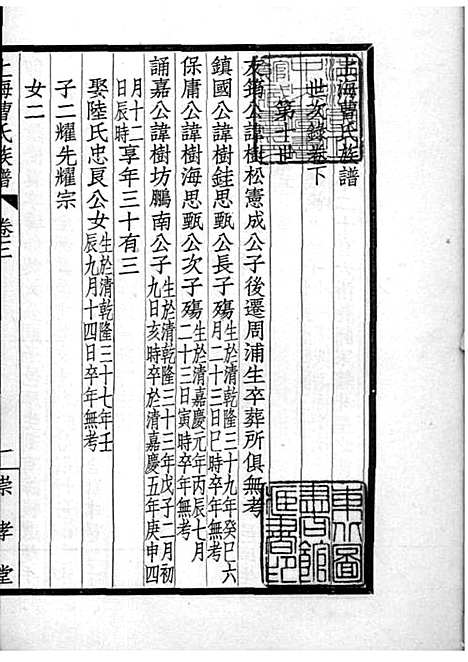 上海曹氏族譜
世次錄卷下
第十一世
友銷公諱樹松憲成公子後遷周浦生卒葬所俱無考
鎮國公諱樹銈思甄公長子殤生於清乾隆三十九年癸巳六月二十三日巳時卒年無考
保庸公諱樹海思甄公次子殤生於清嘉慶元年丙辰七月二十三日寅時卒年無考
誦嘉公諱樹坊鵬南公子生於清乾隆三十三年戊子二月初九日亥時卒於清嘉慶五年庚申四月十二日辰時享年三十有三
娶陸氏忠良公女生於清乾隆三十七年壬辰九月十四日卒年無考
子二耀先耀宗
女二
上海曹氏族譜
卷三
一
崇孝堂